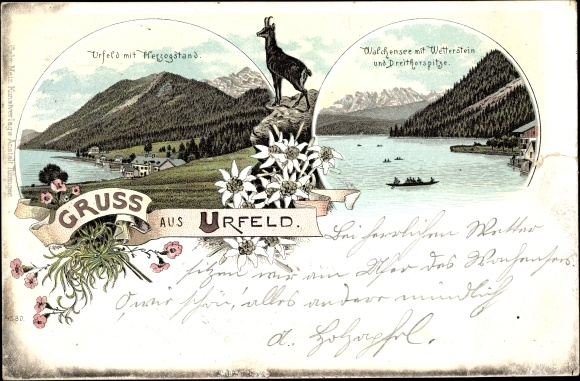 Urfeld mit Herzogstand.
Walchensee mit Wetterstein
und Dreithorspitze.
GRUSS
AUS URFELD.
Bei herrlichem Wetter
sitzen wir am Ufer des
O, wie schön, alles andere mündlich
d. Holzapfel.